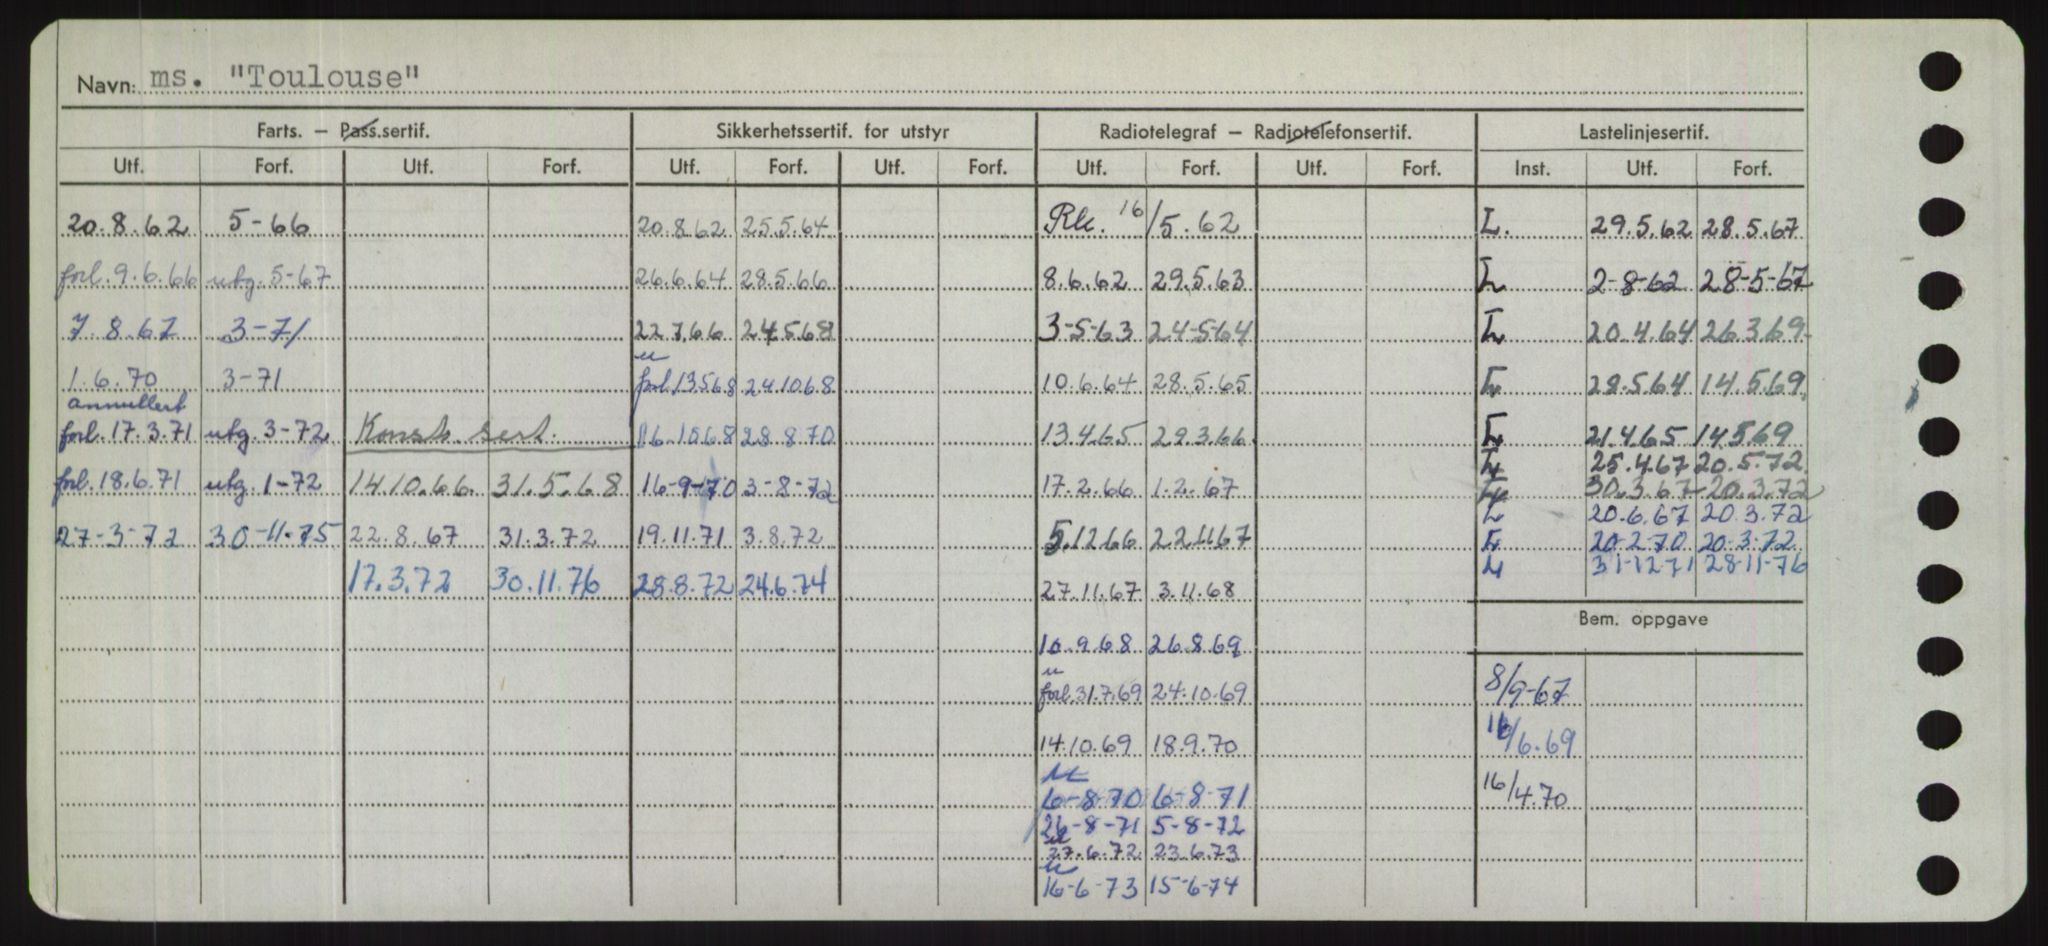 Navn: ms. "Toulouse"
Farts. – Pass.sertif. Sikkerhetssertif. for utstyr Radiotelegraf – Radiotelefonsertif. Lastelinjesertif.
Utf. Forf. Utf. Forf. Utf. Forf. Utf. Forf. Utf. Forf. Utf. Forf. Inst. Utf. Forf.
20.8.62 5-66 20.8.62 25.5.64 Rk. 16/5.62 L. 29.5.62 28.5.67
forl. 9.6.66 utg. 5-67 26.6.64 28.5.66 8.6.62 29.5.63 L 2-8-62 28-5-67
7.8.67 3-71 22.7.66 24.5.68 3-5-63 24-5-64 L 20.4.64 26.3.69
u
1.6.70 3-71 forl. 13.5.68 24.10.68 10.6.64 28.5.65 L 28.5.64 14.5.69
annullert
forl. 17.3.71 utg. 3-72 Konst. sert. 16.10.68 28.8.70 13.4.65 29.3.66 L 21.4.65 14.5.69
L 25.4.67 20.5.72
forl. 18.6.71 utg. 1-72 14.10.66 31.5.68 16-9-70 3-8-72 17.2.66 1.2.67 L 30.3.67 20.3.72
L 20.6.67 20.3.72
27-3-72 30-11-75 22.8.67 31.3.72 19.11.71 3.8.72 5.12.66 22.11.67 L 20-2-70 20-3-72
17.3.72 30.11.76 28.8.72 24.6.74 27.11.67 3.11.68 L 31-12-71 28-11-76
Bem. oppgave
10.9.68 26.8.69
u
forl. 31.7.69 24.10.69 8/9-67
14.10.69 18.9.70 16/6.69
u
6-8-70 6-8-71 16/4.70
26-8-71 5-8-72
u
27.6.72 23.6.73
u
16-6-73 15-6-74